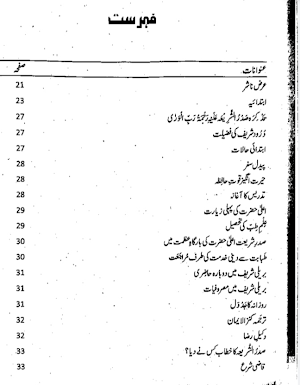 فہرست
عنوانات صفحہ
عرض ناشر 21
ابتدائیہ 23
تذکرۂ صدر الشریعہ علیہ رحمۃ رب الورٰی 27
درود شریف کی فضیلت 27
ابتدائی حالات 27
پیدل سفر 28
حیرت انگیز قوتِ حافظہ 28
تدریس کا آغاز 28
اعلیٰ حضرت کی پہلی زیارت 29
علمِ طب کی تحصیل 29
صدر شریعت اعلیٰ حضرت کی بارگاہِ عظمت میں 30
طبابت سے دینی خدمت کی طرف مراجعت 30
بریلی شریف میں دوبارہ حاضری 31
بریلی شریف میں مصروفیات 31
روزانہ کا جدول 31
ترجمہ کنز الایمان 32
وکیلِ رضا 32
صدر الشریعہ کا خطاب کس نے دیا؟ 33
قاضیِ شرع 33